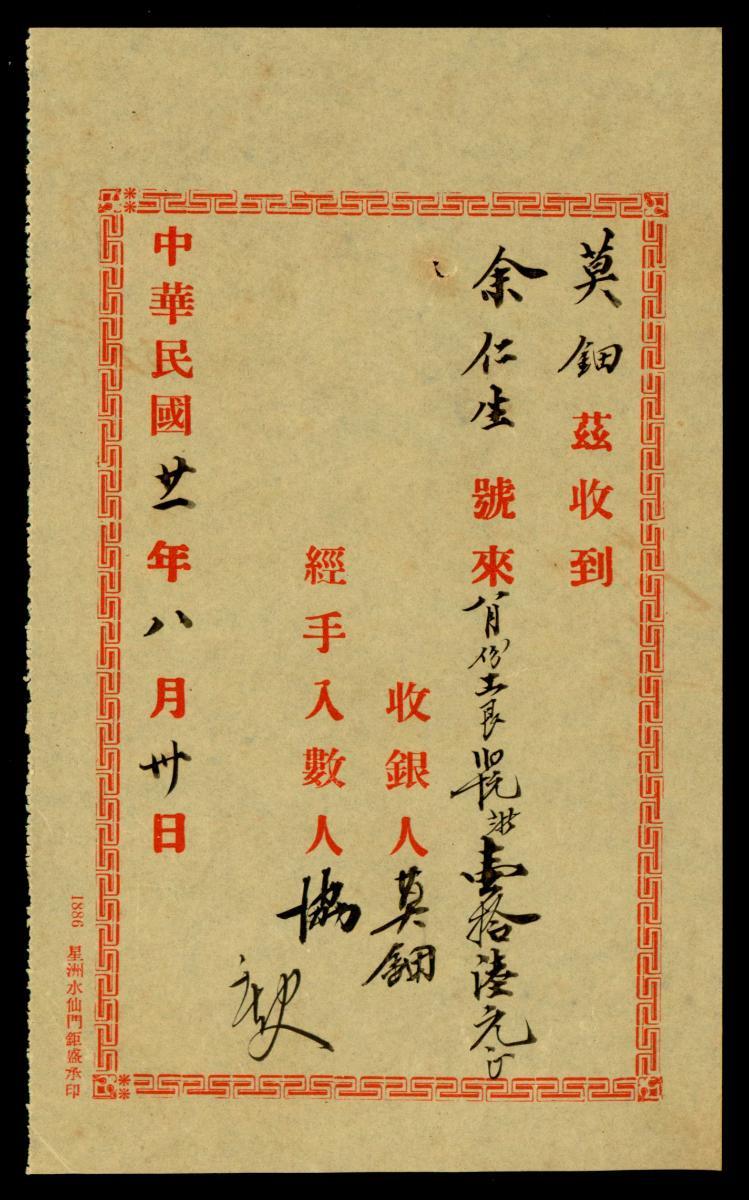 莫鈿茲收到
余仁生號來八月份工艮 洪壹拾陸元正
收銀人莫鈿
經手入數人協
中華民國廿一年八月卅日
1886 星洲水仙門鉅盛承印